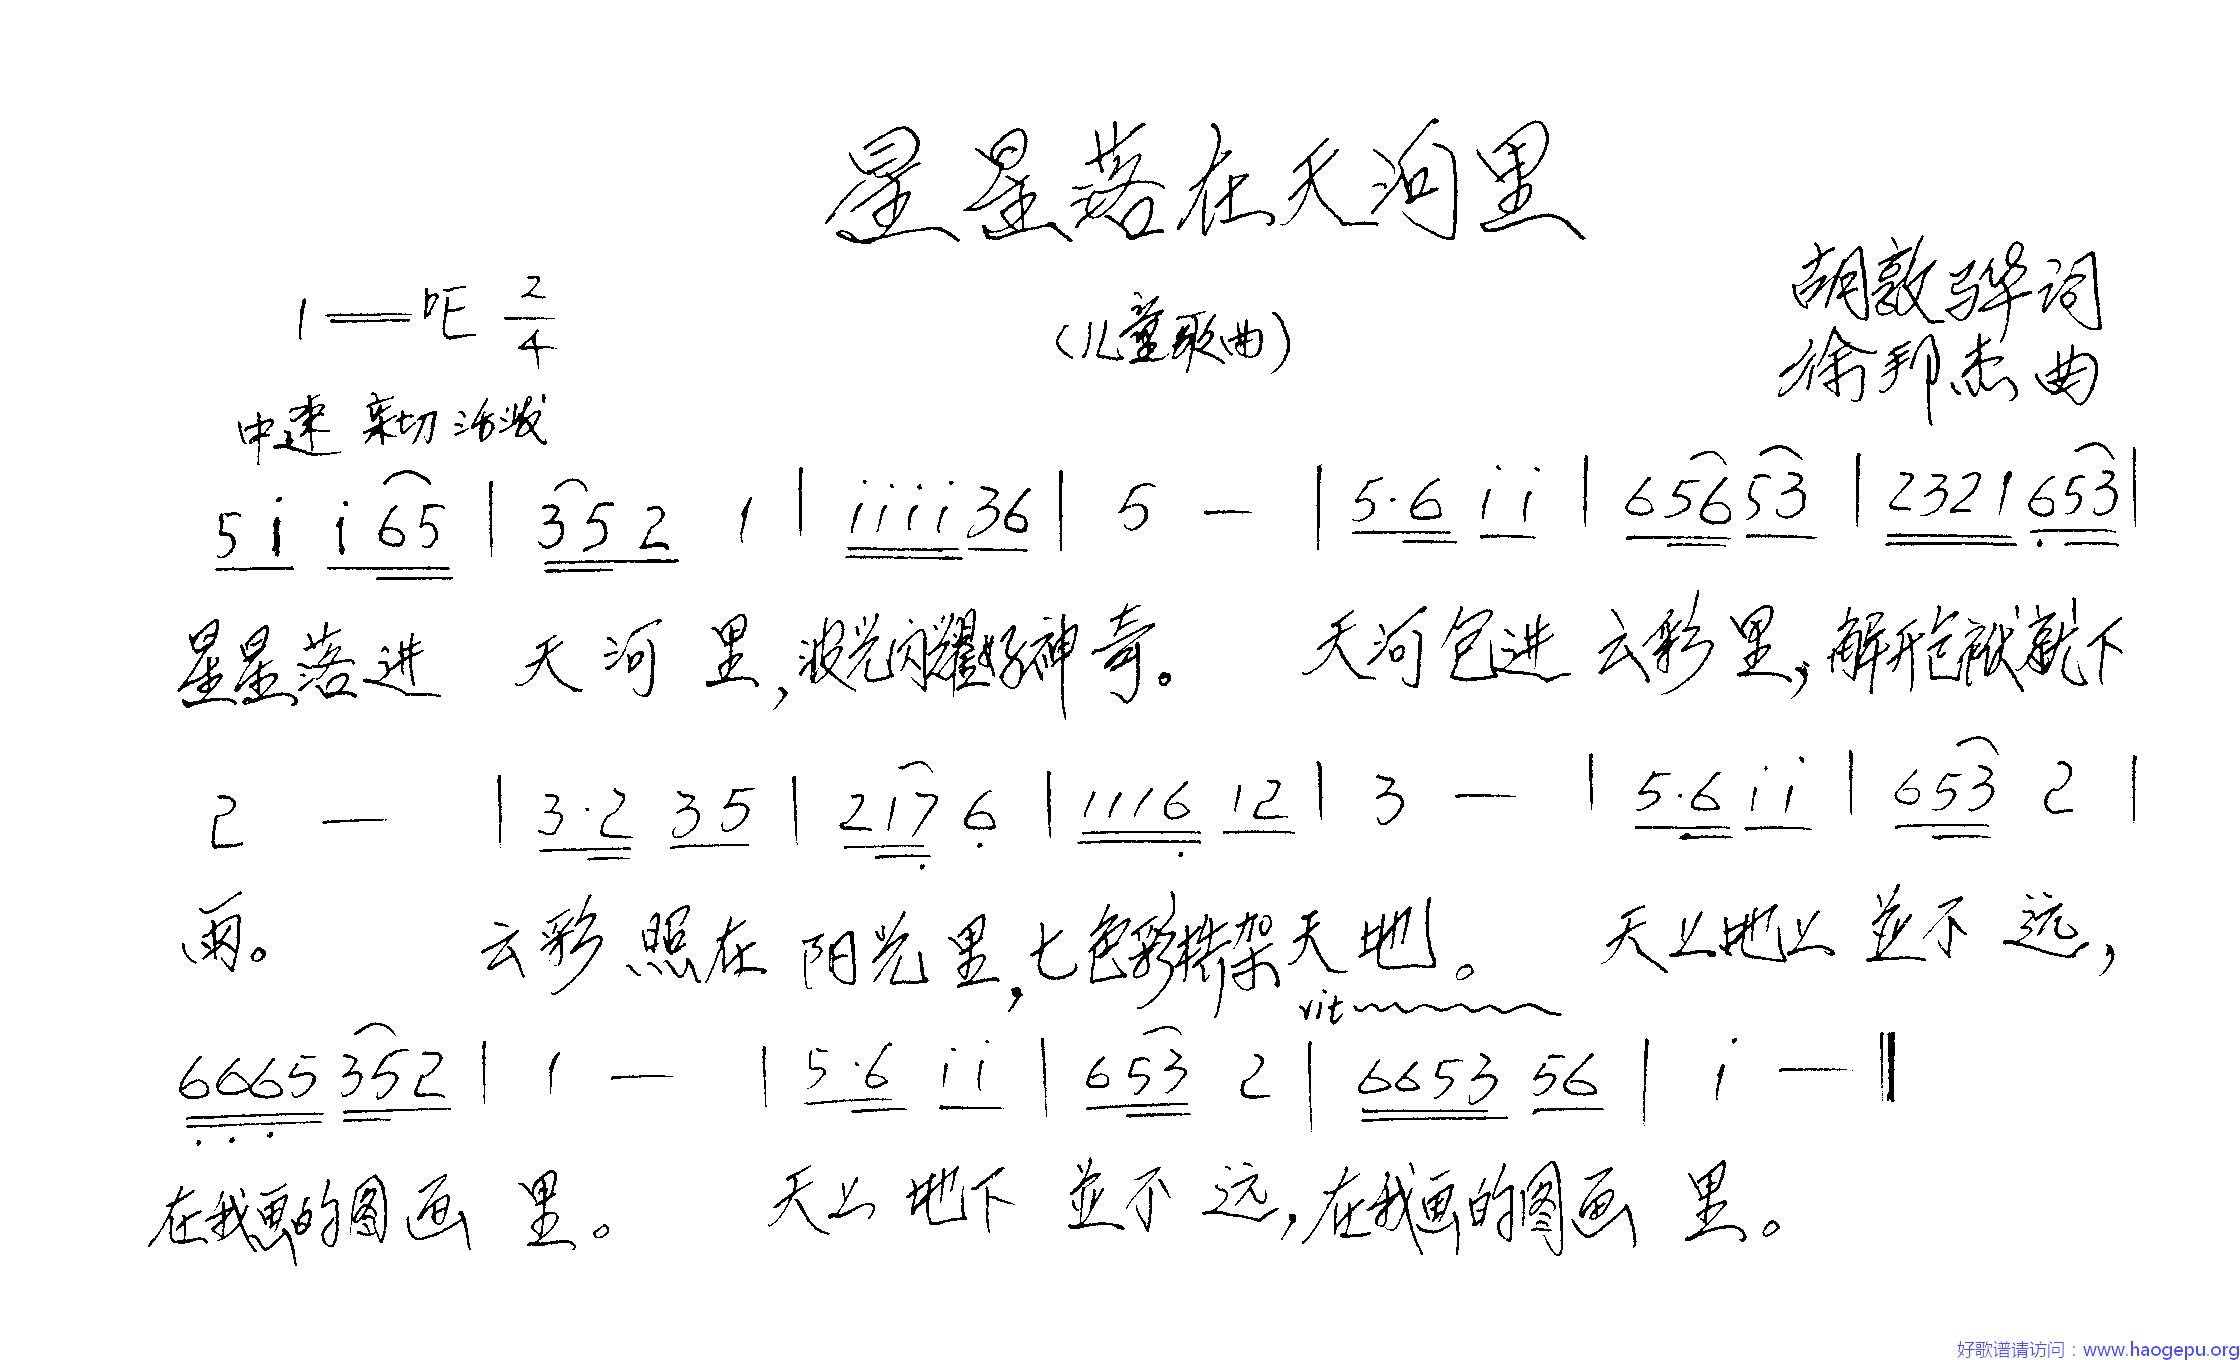 星星落在天河里
胡敦骅词
1=♭E 2/4
(儿童歌曲)
徐邦杰曲
中速 亲切 活泼
5 i i 6 5 | 3 5 2 1 | i i i i 3 6 | 5 — | 5·6 i i | 6 5 6 5 3 | 2 3 2 1 6 5 3 |
星星落进 天河里,波光闪耀好神奇。 天河包进云彩里,解开包袱就下
2 — | 3·2 3 5 | 2 1 7 6 | 1 1 1 6 1 2 | 3 — | 5·6 i i | 6 5 3 2 |
雨。 云彩照在阳光里,七色彩桥架天地。 天上地上並不远,
rit
6 6 6 5 3 5 2 | 1 — | 5·6 i i | 6 5 3 2 | 6 6 5 3 5 6 | i — ‖
在我画的图画里。 天上地下並不远,在我画的图画里。
好歌谱请访问:www.haogepu.org